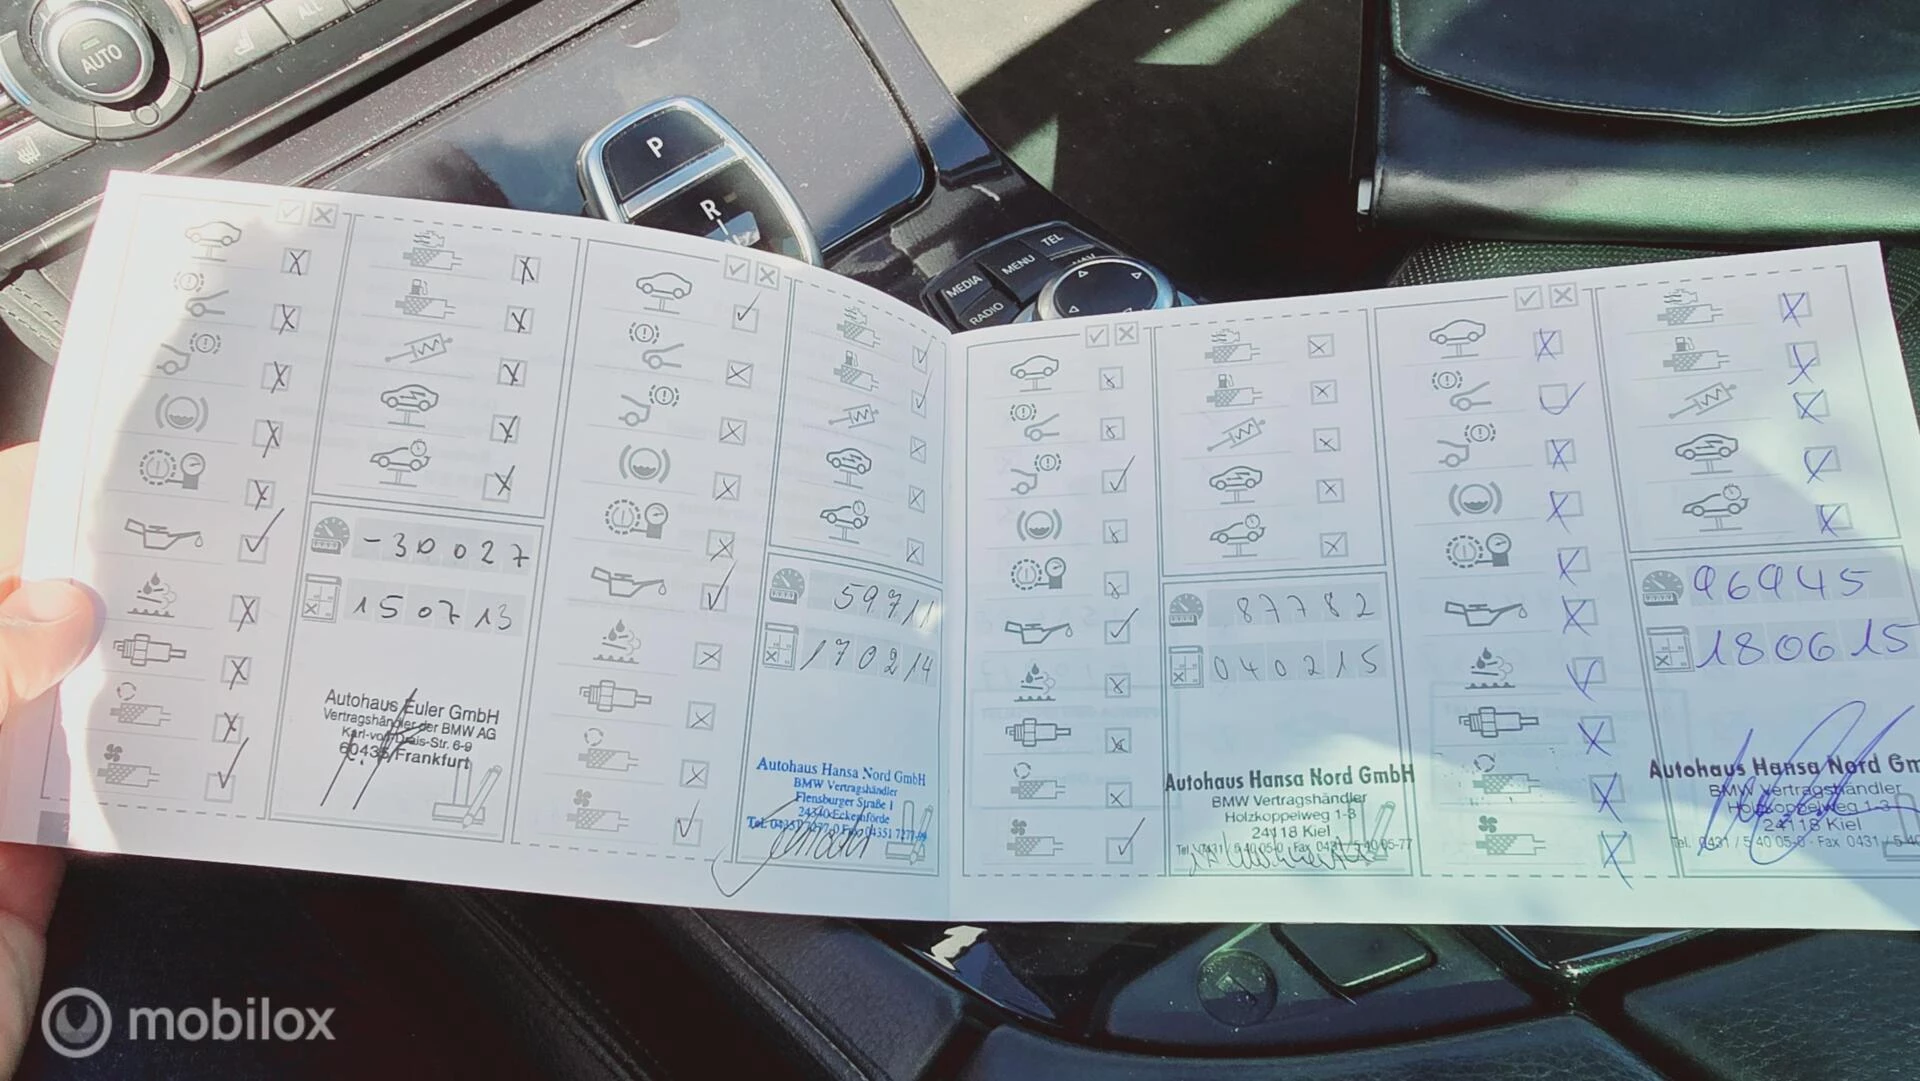 AUTO
ALL
P
R
MEDIA
MENU
TEL
RADIO
-30027
150713
Autohaus Euler GmbH
Vertragshändler der BMW AG
Karl-von-Drais-Str. 6-9
60435 Frankfurt
59711
170214
Autohaus Hansa Nord GmbH
BMW Vertragshändler
Flensburger Straße 1
24340 Eckernförde
Tel. 04351 7277-0 Fax 04351 7277-
87782
040215
Autohaus Hansa Nord GmbH
BMW Vertragshändler
Holzkoppelweg 1-3
24118 Kiel
Tel. 0431 / 5 40 05-0 · Fax 0431 / 5 40 05-77
96945
180615
Autohaus Hansa Nord Gm
BMW Vertragshändler
Holzkoppelweg 1-3
24118 Kiel
Tel. 0431 / 5 40 05-0 · Fax 0431 / 5
mobilox